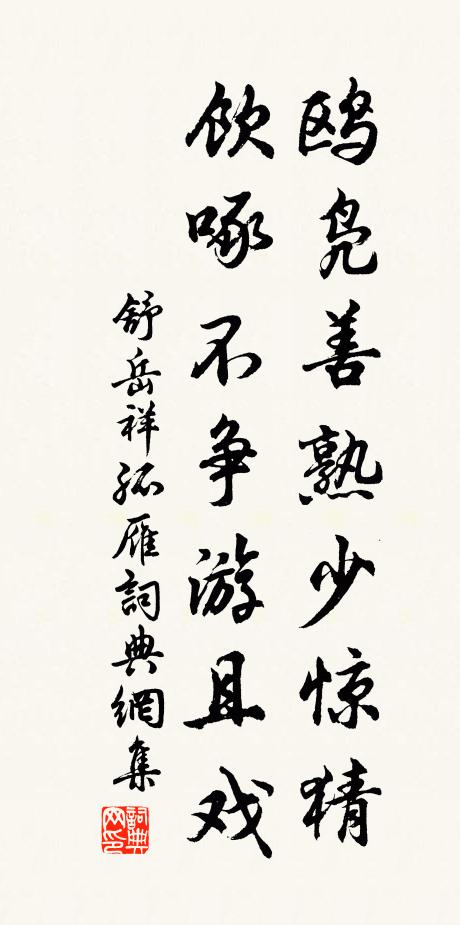 鸥凫善熟少惊猜
饮啄不争游且戏
舒岳祥孤雁詞典網集
詞典网印